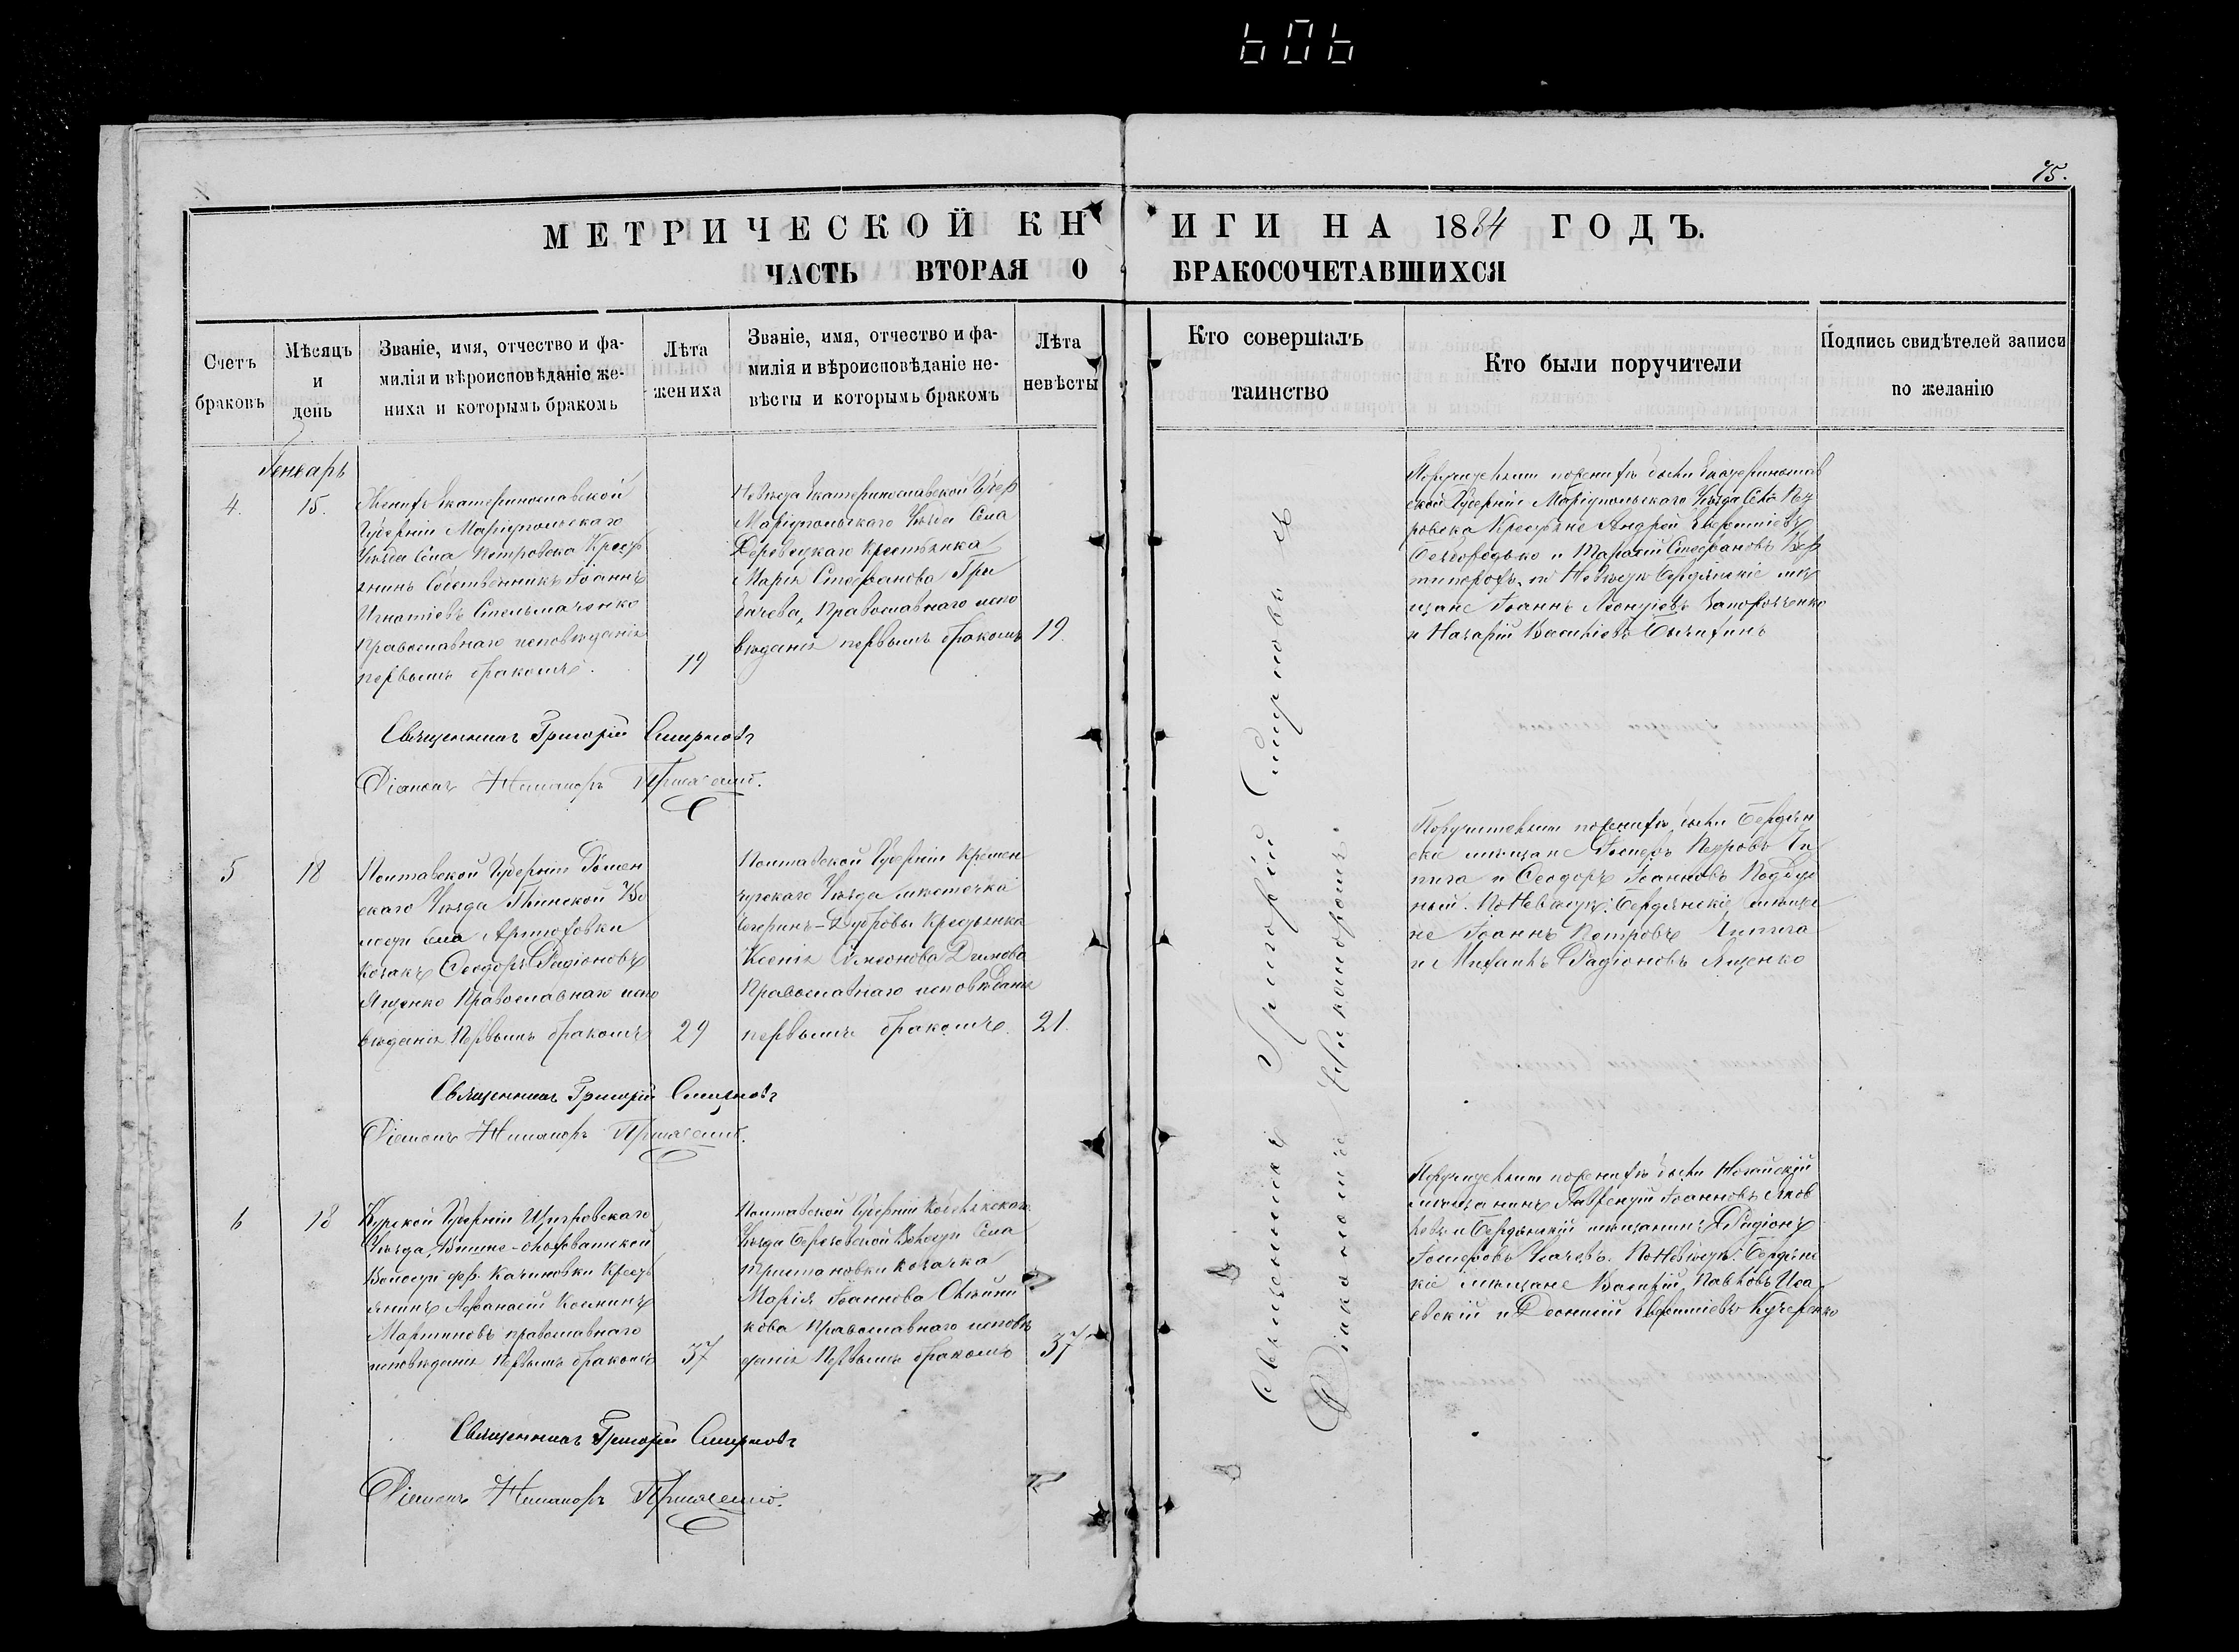 606
75.
МЕТРИЧЕСКОЙ КНИГИ НА 1884 ГОДЪ.
ЧАСТЬ ВТОРАЯ О БРАКОСОЧЕТАВШИХСЯ
Счетъ браковъ
Мѣсяцъ и день
Званіе, имя, отчество и фа-
милія и вѣроисповѣданіе же-
ниха и которымъ бракомъ
Лѣта жениха
Званіе, имя, отчество и фа-
милія и вѣроисповѣданіе не-
вѣсты и которымъ бракомъ
Лѣта невѣсты
Кто совершалъ
таинство
Кто были поручители
Подпись свидѣтелей записи
по желанію
Генварь
4.
15.
Женихъ Екатеринославской
Губерніи Маріупольскаго
Уѣзда Села Петровска Крест
янинъ Собственникъ Іоаннъ
Игнатіевъ Стельмаченко
Православнаго исповѣданія
первымъ бракомъ.
19
Невѣста Екатеринославской Губер
Маріупольскаго Уѣзда Села
Крестьянка
Марія Стефанова Гри
бачева, Православнаго испо
вѣданія первымъ бракомъ
19.
Поручители по женихѣ были Екатеринослав
ской Губерніи Маріупольскаго Уѣзда Села Пет
ровска Крестьяне Андрей
и Тарасій Стефановъ
по Невѣстѣ Бердянскіе мѣ
щане Іоаннъ Леонтіевъ Запорожченко
и Назарій Василіевъ
Священникъ Григорій Смирновъ
Діаконъ Никаноръ
5
18
Полтавской Губерніи Ромен
скаго Уѣзда Глинской Во
лости Села Артюховки
Козакъ Ѳеодоръ Радіоновъ
Ященко Православнаго испо
вѣданія Первымъ бракомъ
29
Полтавской Губерніи Кремен
чугскаго Уѣзда мѣстечка
Чигринъ-Дубровы Крестьянка
Ксенія Симеонова
Православнаго исповѣданія
первымъ бракомъ.
21.
Поручители по женихѣ были Бердян
скіе мѣщане Іосифъ Петровъ Чи
пига и Ѳеодоръ Іоанновъ
По Невѣстѣ: Бердянскіе мѣща
не Іоаннъ Петровъ Чипига
и Михаилъ Радіоновъ Ященко
Священникъ Григорій Смирновъ
Діаконъ Никаноръ
6
18
Курской Губерніи Щигровскаго
Уѣзда, Вышне-Ольховатской
Волости дер. Калиновки Крест
янинъ Аѳанасій Косминъ
Мартиновъ православнаго
исповѣданія Первымъ бракомъ
37
Полтавской Губерніи Кобелякскаго
Уѣзда Волости Села
козачка
Марія Іоаннова Олѣйни
кова Православнаго исповѣ
данія Первымъ бракомъ
37
Поручители по женихѣ были Ногайскій
мѣщанинъ Лаврентій Іоанновъ Яков
левъ и Бердянскій мѣщанинъ Радіонъ
По Невѣстѣ: Бердянс
кіе мѣщане Василій Павловъ Иса
евскій и Кучеренко
Священникъ Григорій Смирновъ
Діаконъ Никаноръ
Священникъ Григорій Смирновъ съ
Діакономъ Никаноромъ.